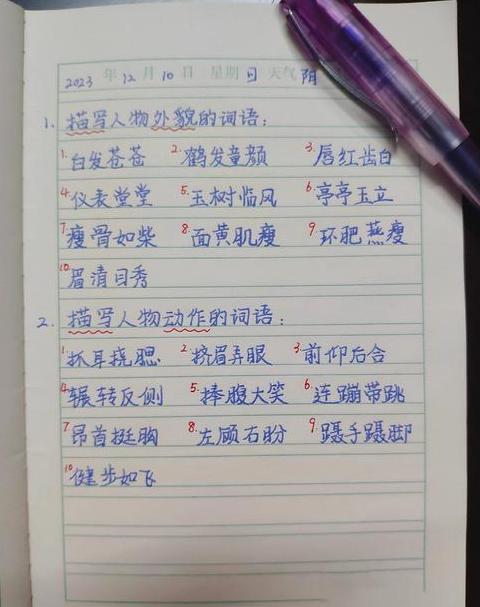 2023 年 12 月 10 日 星期 日 天气 阴
1. 描写人物外貌的词语：
1.白发苍苍 2.鹤发童颜 3.唇红齿白
4.仪表堂堂 5.玉树临风 6.亭亭玉立
7.瘦骨如柴 8.面黄肌瘦 9.环肥燕瘦
10.眉清目秀
2. 描写人物动作的词语：
1.抓耳挠腮 2.挤眉弄眼 3.前仰后合
4.辗转反侧 5.捧腹大笑 6.连蹦带跳
7.昂首挺胸 8.左顾右盼 9.蹑手蹑脚
10.健步如飞